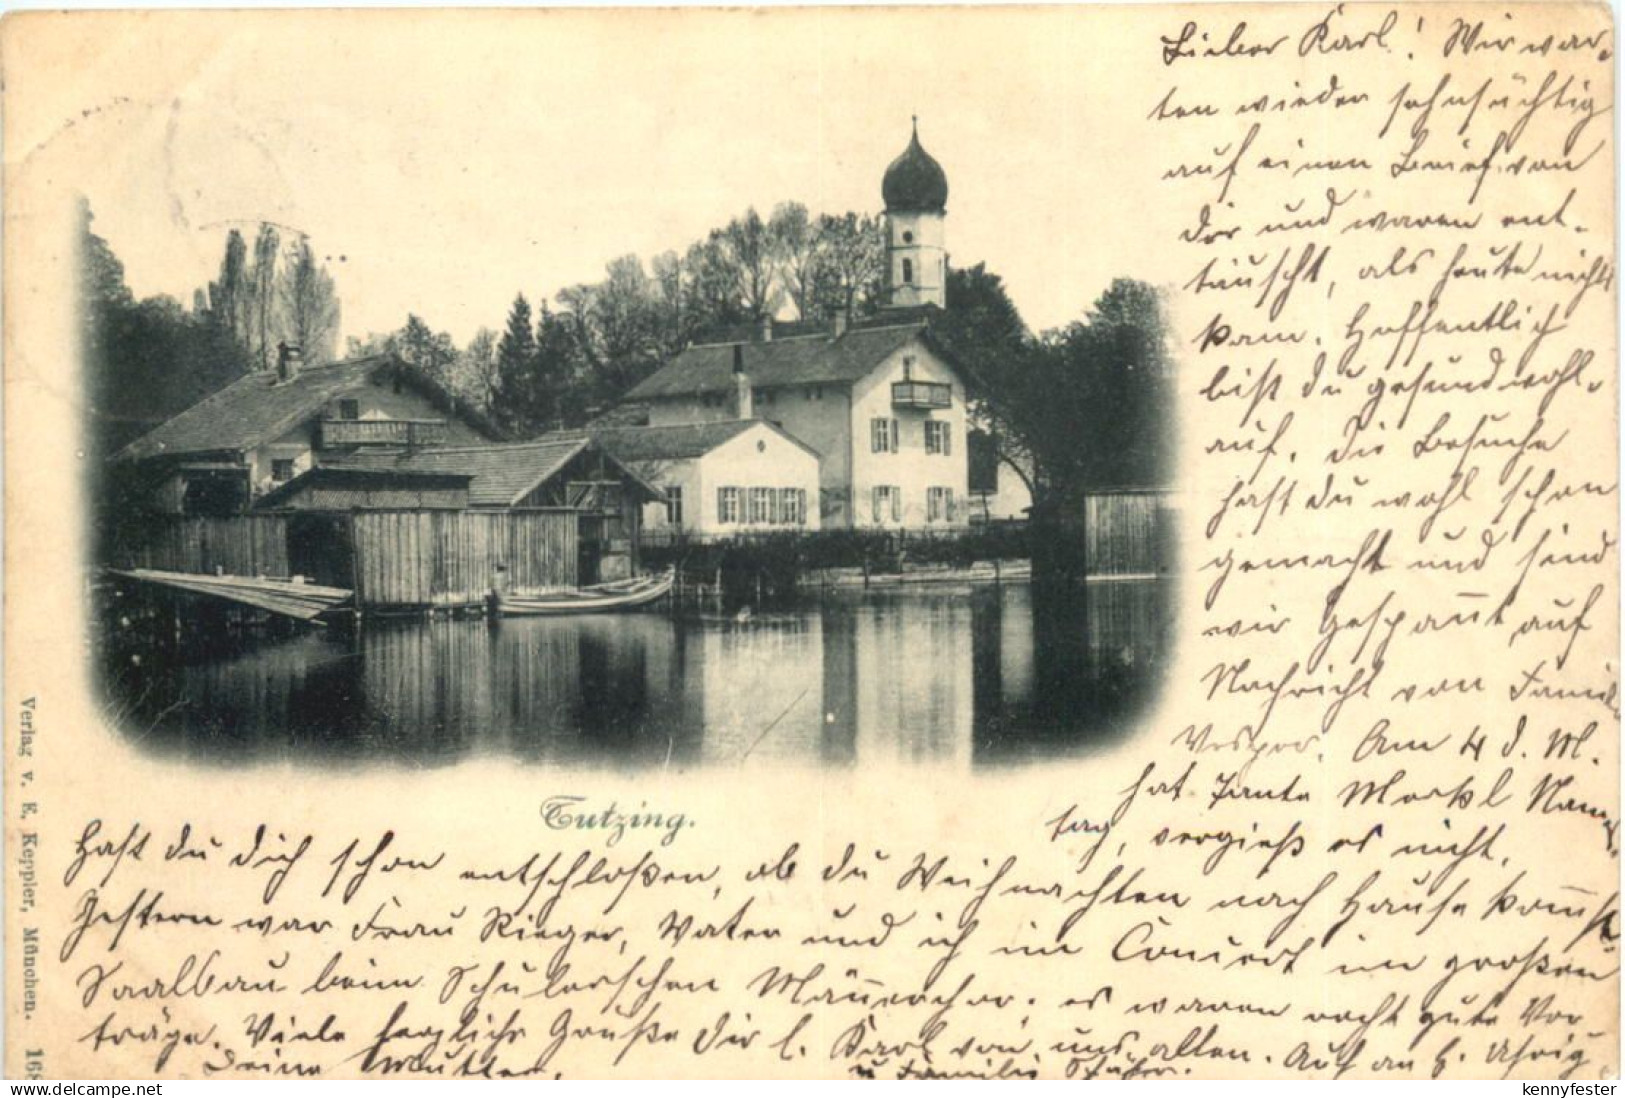 Lieber Karl! Wir war-
ten wieder sehnsüchtig
auf einen Brief von
dir und waren ent-
täuscht, als heute nicht
kam. Hoffentlich
bist du gesund wohl-
auf. Die Besuche
hast du wohl schon
gemacht und sind
wir gespannt auf
Nachricht von Familie
Vesper. Am 4 d. M.
hat Tante Merkl Nams-
tag, vergieß es nicht.
Tutzing.
Hast du dich schon entschloßen, ob du Weihnachten nach Hause kommst.
Gestern war Frau Rieger, Vater und ich im Concert im großen
Saalbau beim Schülerschen Männerchor; es waren recht gute Vor-
träge. Viele herzliche Grüße dir l. Karl von uns allen. Auch an H.
Deine Mutter. u Familie
Verlag v. E. Keppler, München. 168
delcampe.net
kennyfester